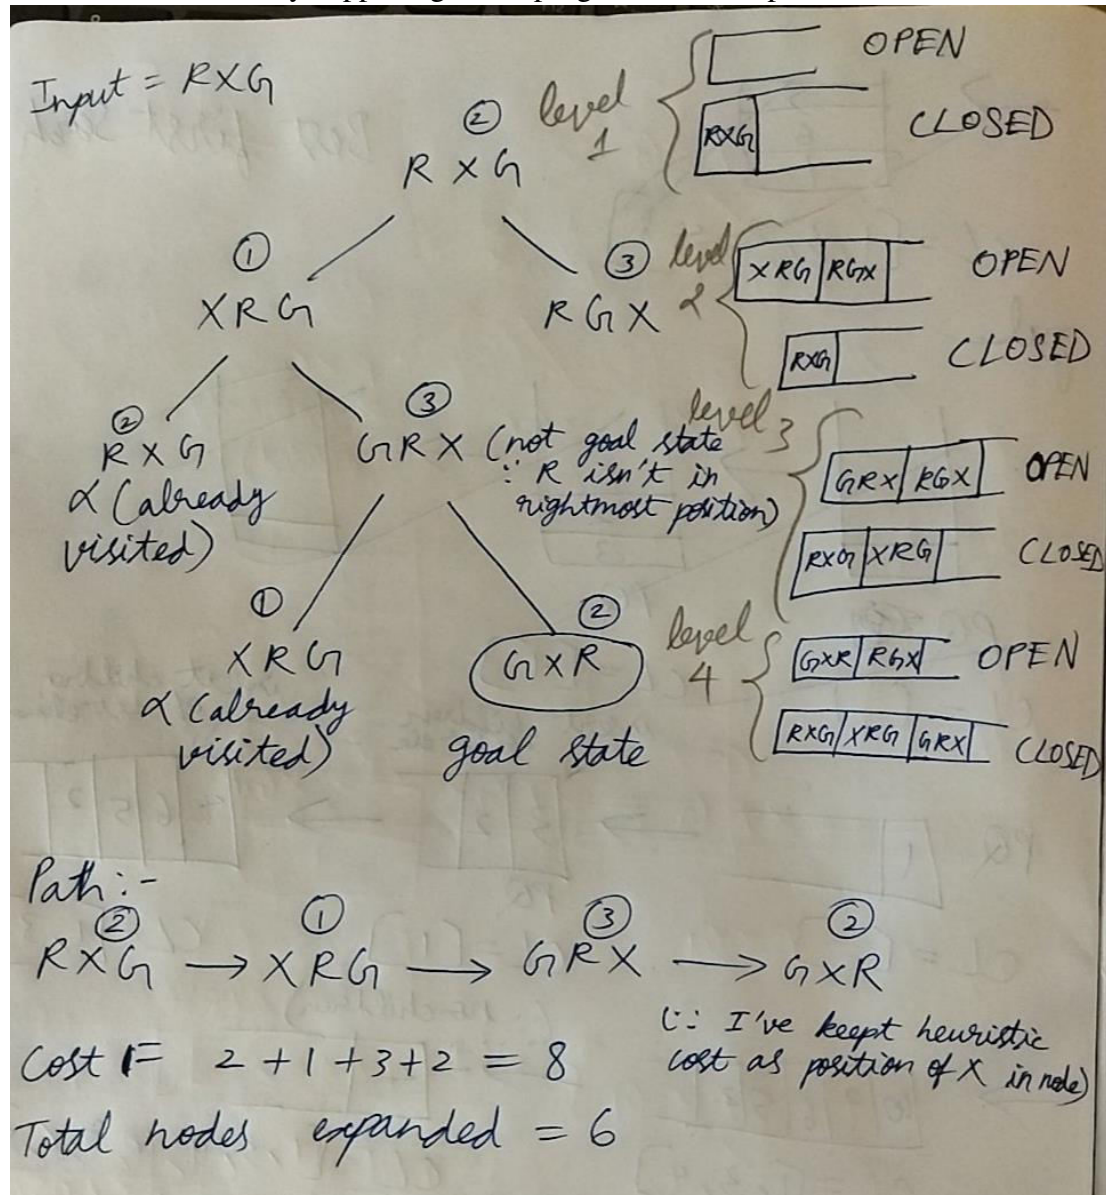 Input = RXG
②
R X G
level
1
OPEN
RXG
CLOSED
①
X R G
③
R G X
level
2
XRG RGX
OPEN
RXG
CLOSED
②
R X G
α (already
visited)
③
GRX (not goal state
∵ R isn't in
rightmost position)
level 3
GRX RGX
OPEN
RXG XRG
CLOSED
①
X R G
α (already
visited)
②
GXR
goal state
level
4
GXR RGX
OPEN
RXG XRG GRX
CLOSED
Path:-
② ① ③ ②
RXG → XRG → GRX → GXR
(∵ I've keept heuristic
cost as position of X in node)
Cost = 2+1+3+2 = 8
Total nodes expanded = 6